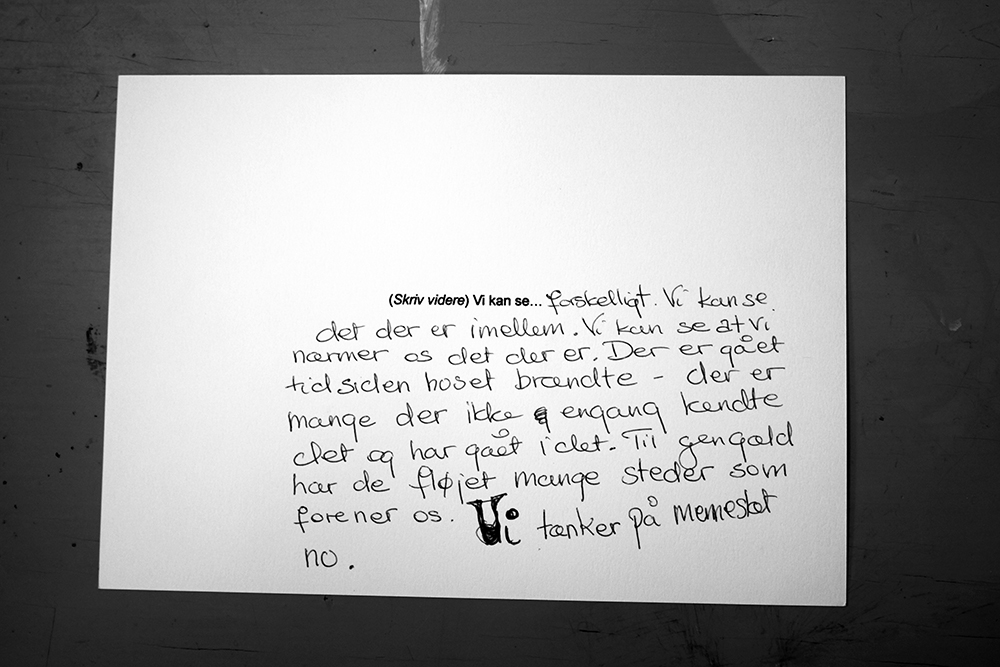 (Skriv videre) Vi kan se... forskelligt. Vi kan se
det der er imellem. Vi kan se at vi
nærmer os det der er. Der er gået
tid siden huset brændte - der er
mange der ikke engang kendte
det og har gået i det. Til gengæld
har de fløjet mange steder som
forener os. Vi tænker på
no.